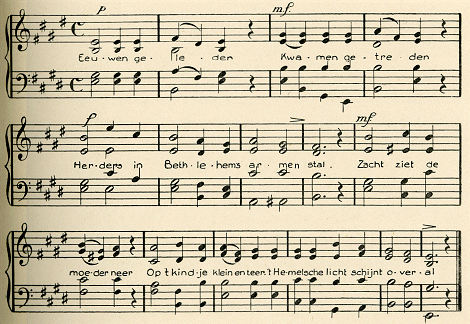 p mf
Eeu-wen ge-lie-der Kwa-men ge-tre-den
f mf
Her-ders in Beth-le-hems ar-men stal. Zacht ziet de
moe-der neer Op t kind-je klein en teer. t Hemelsche licht schijnt o-ver-al